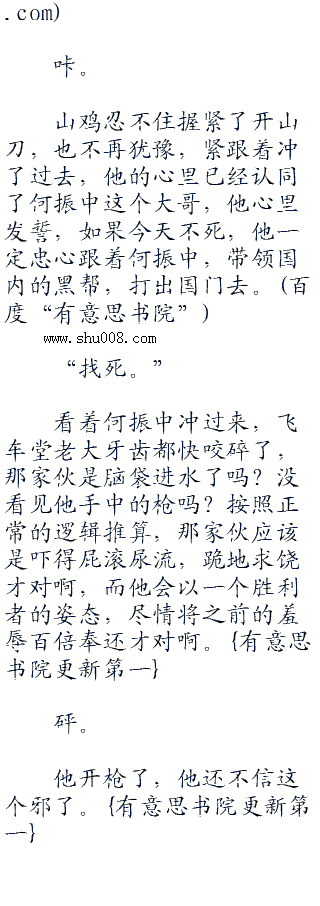 .com)
咔。
山鸡忍不住握紧了开山
刀，也不再犹豫，紧跟着冲
了过去，他的心里已经认同
了何振中这个大哥，他心里
发誓，如果今天不死，他一
定忠心跟着何振中，带领国
内的黑帮，打出国门去。(百
度“有意思书院”)
www.shu008.com
“找死。”
看着何振中冲过来，飞
车堂老大牙齿都快咬碎了，
那家伙是脑袋进水了吗？没
看见他手中的枪吗？按照正
常的逻辑推算，那家伙应该
是吓得屁滚尿流，跪地求饶
才对啊，而他会以一个胜利
者的姿态，尽情将之前的羞
辱百倍奉还才对啊。{有意思
书院更新第一}
砰。
他开枪了，他还不信这
个邪了。{有意思书院更新第
一}